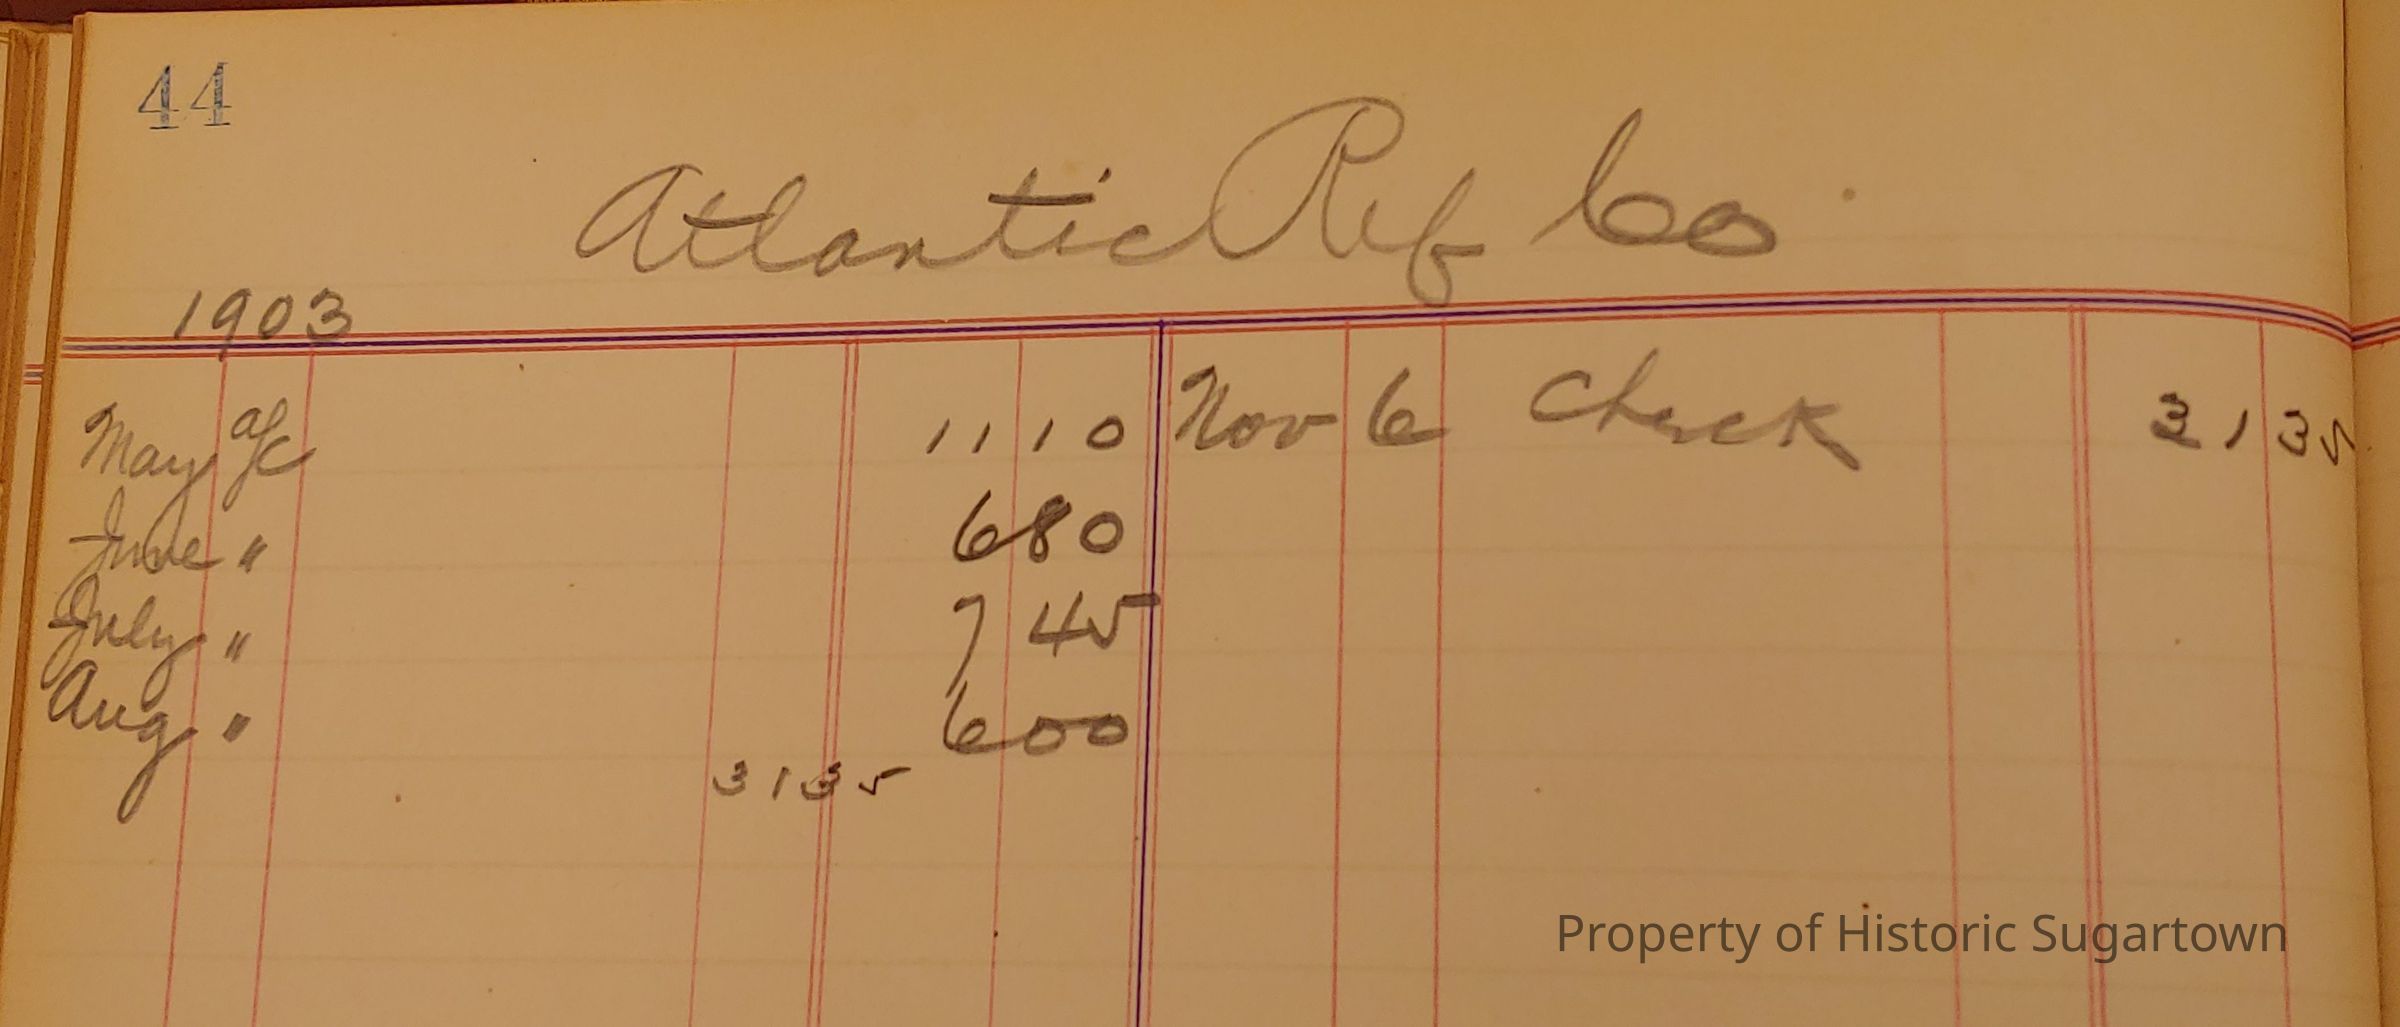 44
Atlantic Ref Co.
1903
May a/c 11 10 Nov 6 Check 31 35
June " 6 80
July " 7 45
Aug " 6 00
31 35
Property of Historic Sugartown